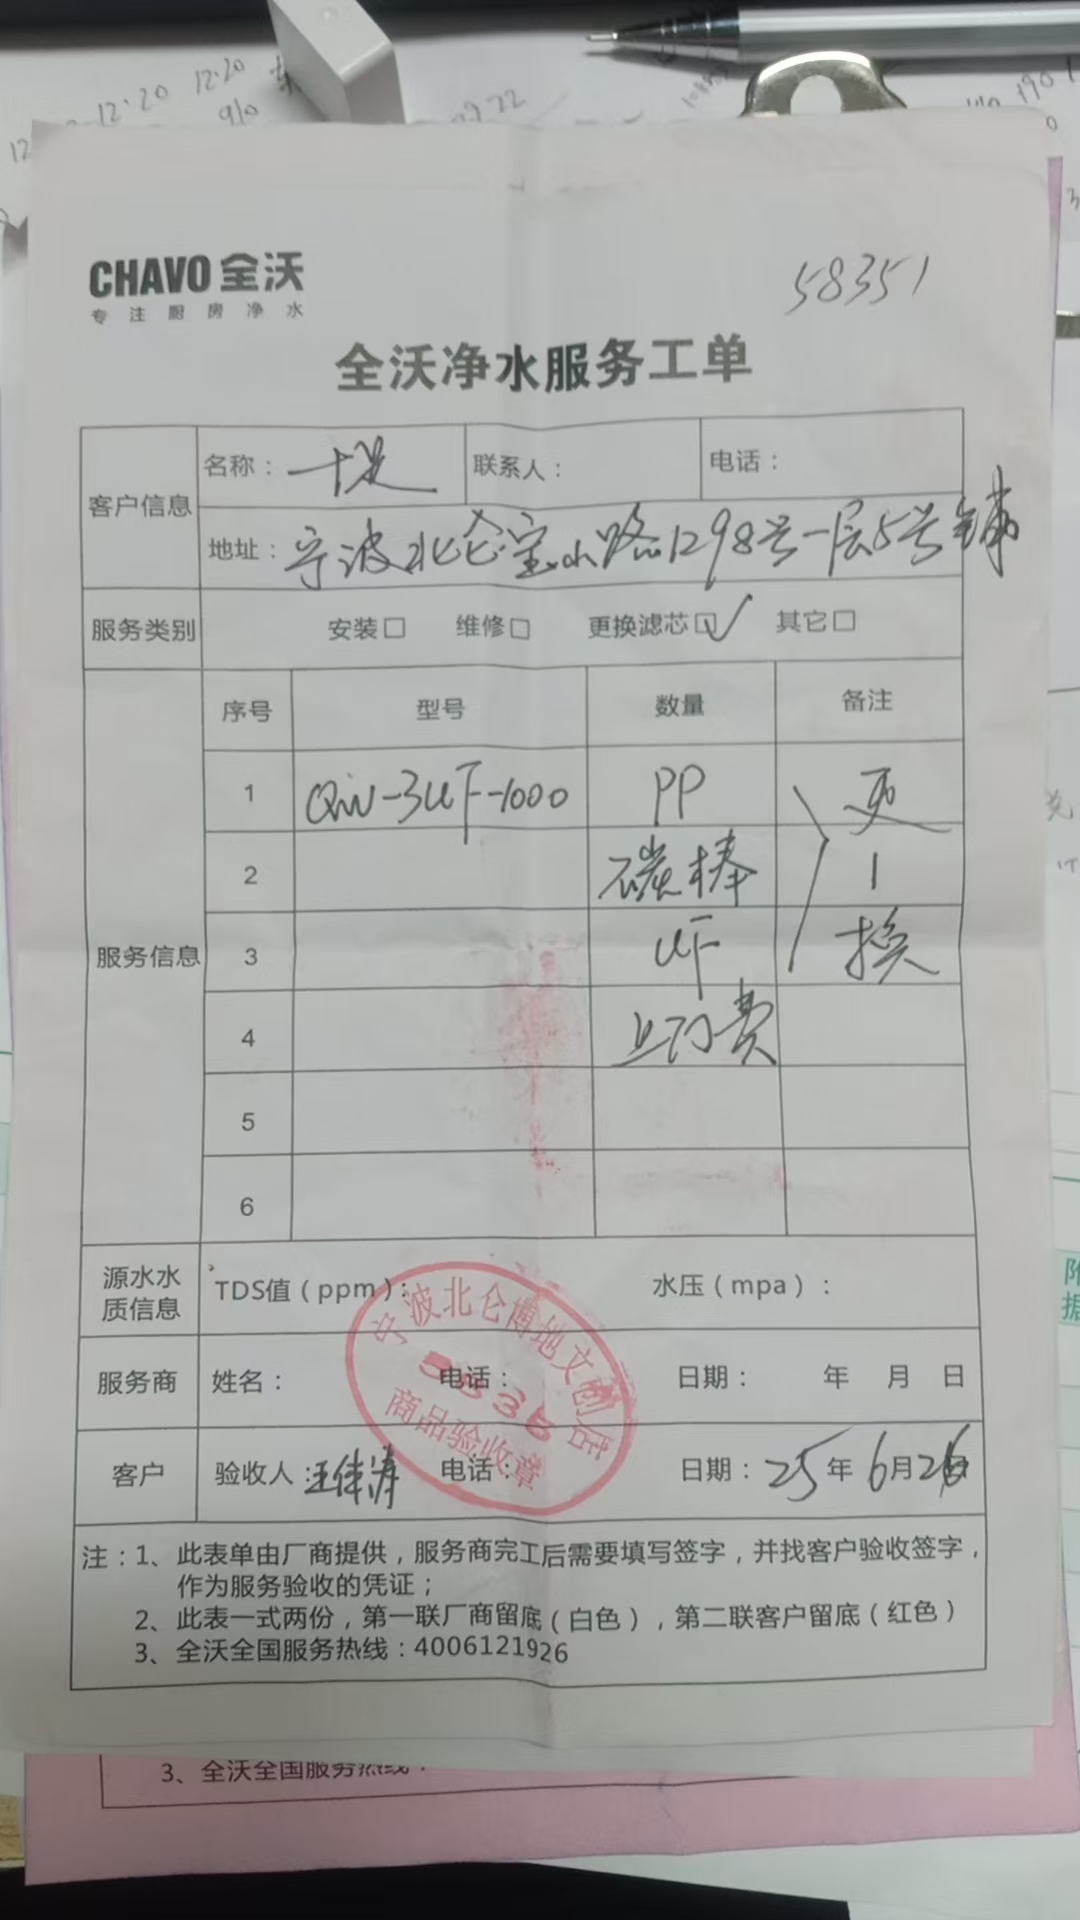 12·20 12·20
910
CHAVO 全沃
专注厨房净水
58351
全沃净水服务工单
客户信息 名称： 联系人： 电话：
地址：宁波北仑宝山路1298号一层5号铺
服务类别 安装□ 维修□ 更换滤芯☑ 其它□
服务信息 序号 型号 数量 备注
1 QW-3UF-1000 PP 更
2 碳棒 |
3 UF 换
4 上门费
5
6
源水水质信息 TDS值（ppm）： 水压（mpa）：
宁波北仑博地文创店
商品验收章
服务商 姓名： 电话： 日期： 年 月 日
客户 验收人：汪伟涛 电话： 日期：25年6月26日
注：1、此表单由厂商提供，服务商完工后需要填写签字，并找客户验收签字，
作为服务验收的凭证；
2、此表一式两份，第一联厂商留底（白色），第二联客户留底（红色）
3、全沃全国服务热线：4006121926
3、全沃全国服务热线：